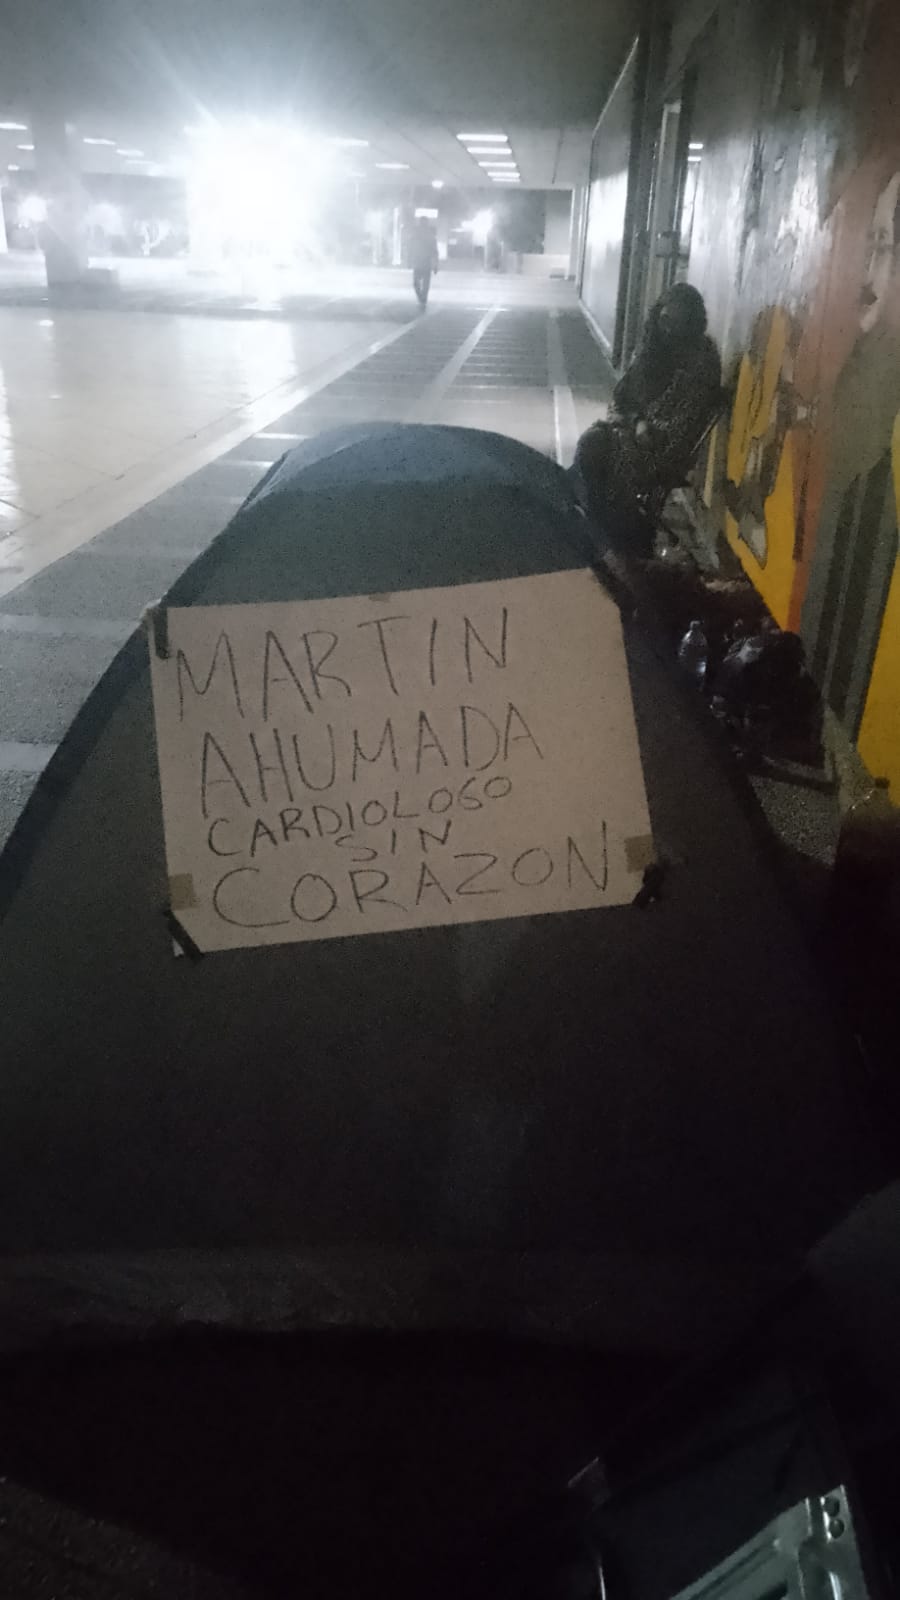 MARTIN
AHUMADA
CARDIOLOGO
SIN
CORAZON